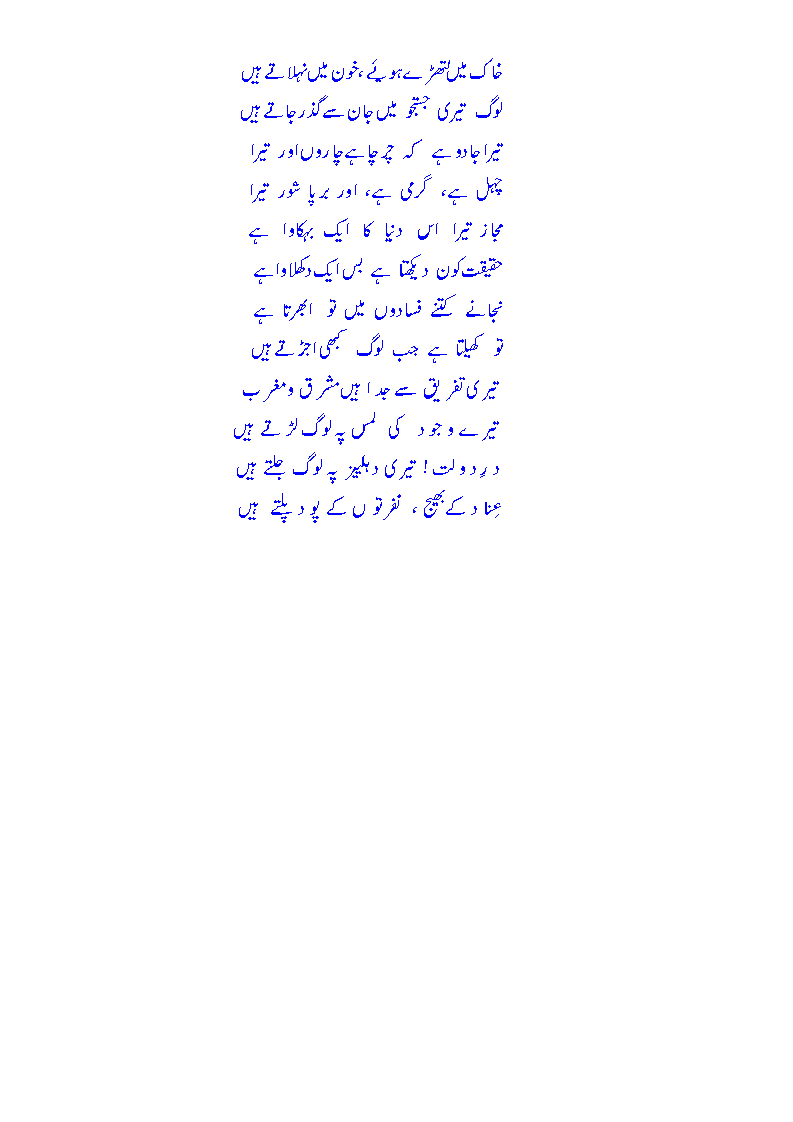 خاک میں لتھڑے ہوئے، خون میں نہلاتے ہیں
لوگ تیری جستجو میں جان سے گذر جاتے ہیں
تیرا جادو ہے کہ چرچا ہے چاروں اور تیرا
چہل ہے، گرمی ہے، اور برپا شور تیرا
مجاز تیرا اس دنیا کا ایک بہکاوا ہے
حقیقت کون دیکھتا ہے بس ایک دکھلاوا ہے
نجانے کتنے فسادوں میں تو ابھرتا ہے
تو کھیلتا ہے جب لوگ کبھی اجڑتے ہیں
تیری تفریق سے جدا ہیں مشرق و مغرب
تیرے وجود کی لمس پہ لوگ لڑتے ہیں
درِ دولت! تیری دہلیز پہ لوگ جلتے ہیں
عِناد کے بھیج، نفرتوں کے پود پلتے ہیں